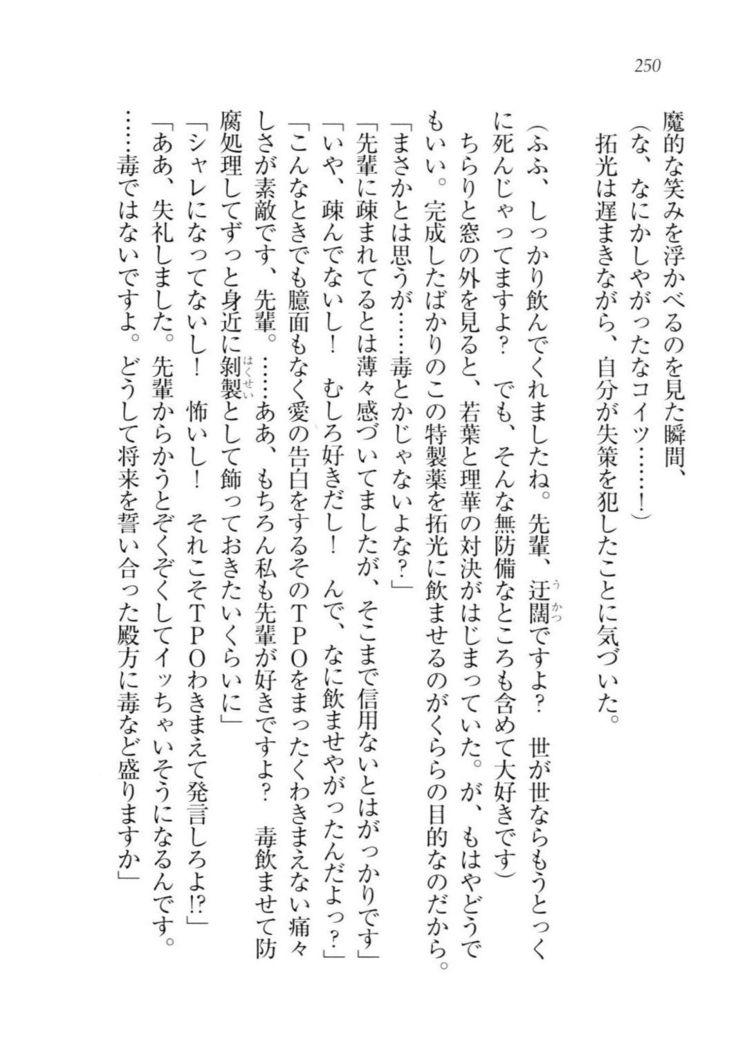 250
魔的な笑みを浮かべるのを見た瞬間、
（な、なにかしやがったなコイツ……！）
拓光は遅まきながら、自分が失策を犯したことに気づいた。
（ふふ、しっかり飲んでくれましたね。先輩、迂闊ですよ？　世が世ならもうとっく
に死んじゃってますよ？　でも、そんな無防備なところも含めて大好きです）
ちらりと窓の外を見ると、若葉と理華の対決がはじまっていた。が、もはやどうで
もいい。完成したばかりのこの特製薬を拓光に飲ませるのがくららの目的なのだから。
「まさかとは思うが……毒とかじゃないよな？」
「先輩に疎まれてるとは薄々感づいてましたが、そこまで信用ないとはがっかりです」
「いや、疎んでないし！　むしろ好きだし！　んで、なに飲ませやがったんだよっ？」
「こんなときでも臆面もなく愛の告白をするそのＴＰＯをまったくわきまえない痛々
しさが素敵です、先輩。……ああ、もちろん私も先輩が好きですよ？　毒飲ませて防
腐処理してずっと身近に剝製として飾っておきたいくらいに」
「シャレになってないし！　怖いし！　それこそＴＰＯわきまえて発言しろよ!?」
「ああ、失礼しました。先輩からかうとぞくぞくしてイッちゃいそうになるんです。
……毒ではないですよ。どうして将来を誓い合った殿方に毒など盛りますか」